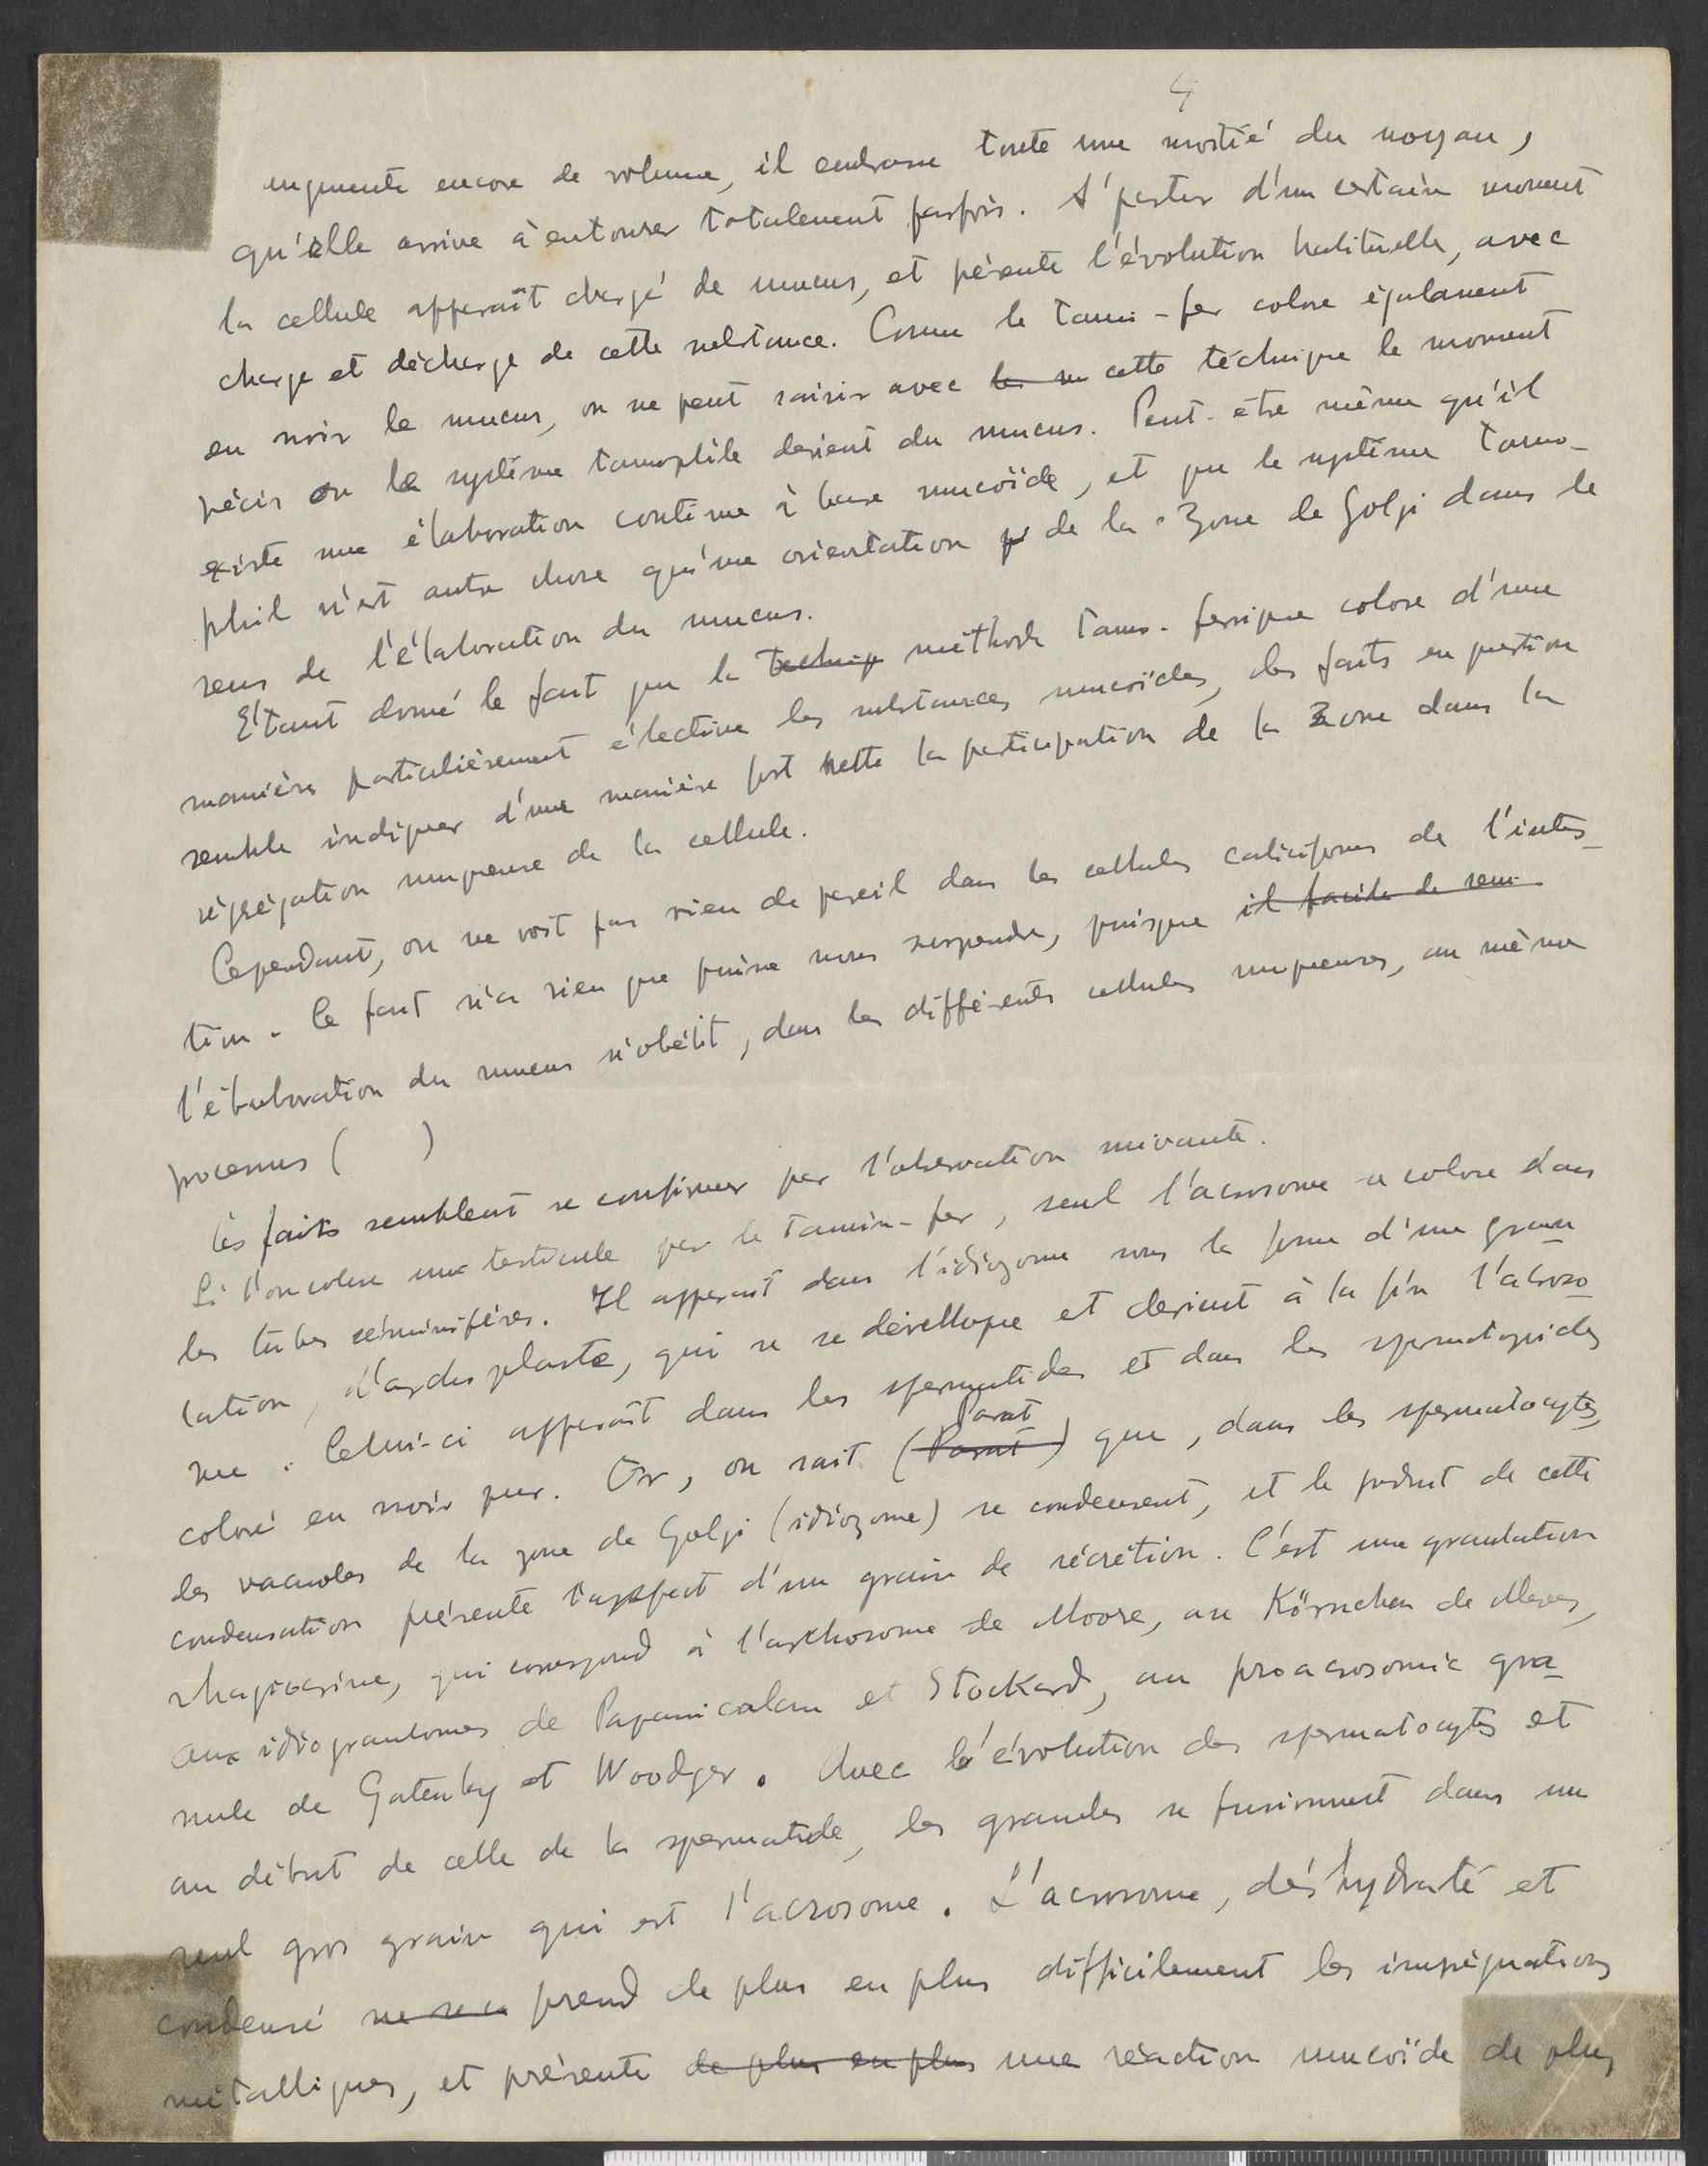 4
augmente encore de volume, il embrasse toute une moitié du noyau,
qu'elle arrive à entourer totalement parfois. A partir d'un certain moment
la cellule apparaît chargé de mucus, et présente l'évolution habituelle, avec
charge et décharge de cette substance. Comme le tanin-fer colore également
en noir le mucus, on ne peut saisir avec cette téchnique le moment
précis ou le système tannophile devient du mucus. Peut-être même qu'il
existe une élaboration continue à base mucoïde, et que le système tanno-
phil n'est autre chose qu'une orientation de la Zone de Golgi dans le
sens de l'élaboration du mucus.
Etant donné le fait que la techniq méthode tanno-ferrique colore d'une
manière particulièrement élective les substances mucoïdes, les faits en question
semble indiquer d'une manière fort nette la participation de la Zone dans la
ségrégation muqueuse de la cellule.
Cependant, on ne voit pas rien de pareil dans les cellules caliciformes de l'intes-
tin. Ce fait n'a rien que puisse nous surprendre, puisque il facile de
l'élaboration du mucus n'obéit, dans les différents cellules muqueuses, au même
processus ( )
Ces faits semblent se confirmer par l'observation suivante.
Si l'on colore une testicule par le tannin-fer, seul l'acrosome se colore dans
les tubes séminifères. Il apparait dans l'idiozome sous la forme d'une granu
lation, qui se se dévellope et devient à la fin l'acroso-
me. Celui-ci apparaît dans les spermatides et dans les spermatozoides
coloré en noir pur. Or, on sait (Parat) Parat que, dans les spermatocytes,
les vacuoles de la zone de Golgi (idiozome) se condensent, et le produit de cette
condensation présente l'aspect d'un grain de sécrétion. C'est une granulation
rhagiocrine, qui correspond à l'archosome de Moore, au Körnchen de Meves,
aux idiogranulomes de Papanicolau et Stockard, au proacrosomic gra-
nule de Gatenby et Woodger. Avec l'évolution des spermatocytes et
au début de celle de la spermatide, les granules se fusionnent dans un
seul gros grain qui est l'acrosome. L'acrosome, déshydraté et
condensé prend de plus en plus difficilement les imprégnations
métalliques, et présente de plus en plus une réaction mucoïde de plus